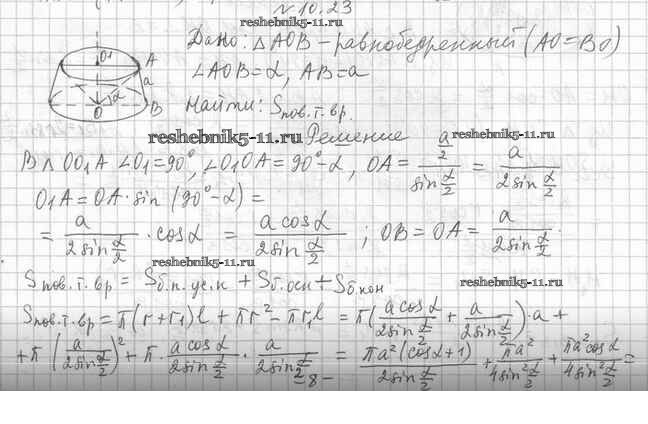 № 10.23
reshebnik5-11.ru
Дано: △AOB – равнобедренный (AO=BO)
∠AOB=α, AB=a
Найти: Sпов.т.вр.
O1 A a α O B
reshebnik5-11.ru
Решение
reshebnik5-11.ru
В △ OO₁A ∠O₁=90°, ∠O₁OA=90°-α, OA = (a/2)/(sin α/2) = a/(2sin α/2)
O₁A = OA·sin (90°-α) =
= a/(2sin α/2) · cosα = (a cosα)/(2sin α/2) ; OB = OA = a/(2sin α/2).
reshebnik5-11.ru
Sпов.т.вр = Sб.п.ус.к + Sб.осн + Sб.кон
reshebnik5-11.ru
Sпов.т.вр = π(r+r₁)l + πr² - πr₁l = π((a cosα)/(2sin α/2) + a/(2sin α/2))·a +
+ π (a/(2sin α/2))² + π (a cosα)/(2sin α/2) · a/(2sin α/2) = (πa²(cosα+1))/(2sin α/2) + (πa²)/(4sin² α/2) + (πa² cosα)/(4sin² α/2) =
– 8 –